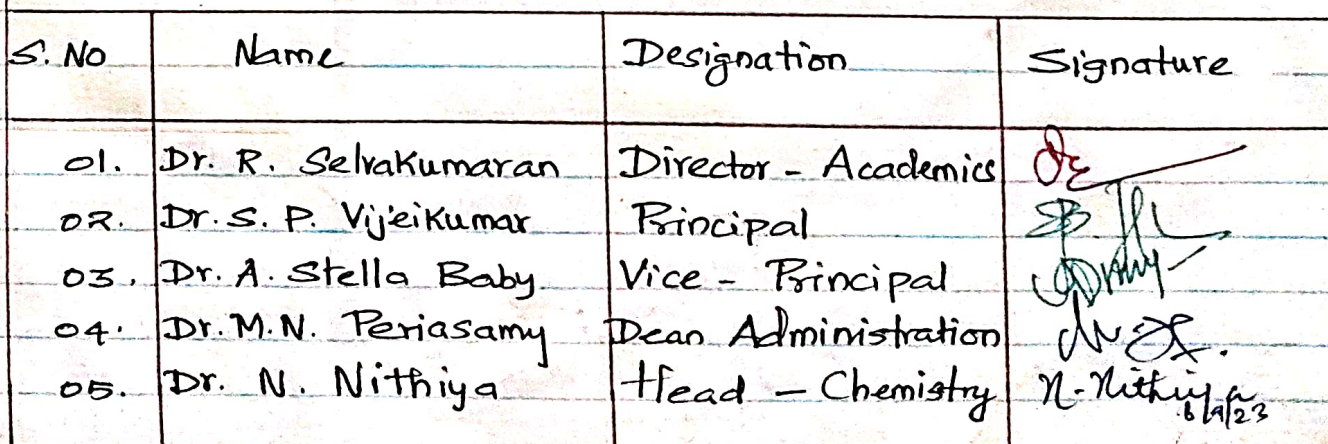 S. No Name Designation Signature
01. Dr. R. Selvakumaran Director - Academics
02. Dr. S. P. Vijeikumar Principal
03. Dr. A. Stella Baby Vice - Principal
04. Dr. M. N. Periasamy Dean Administration
05. Dr. N. Nithiya Head - Chemistry N. Nithiya
6/9/23